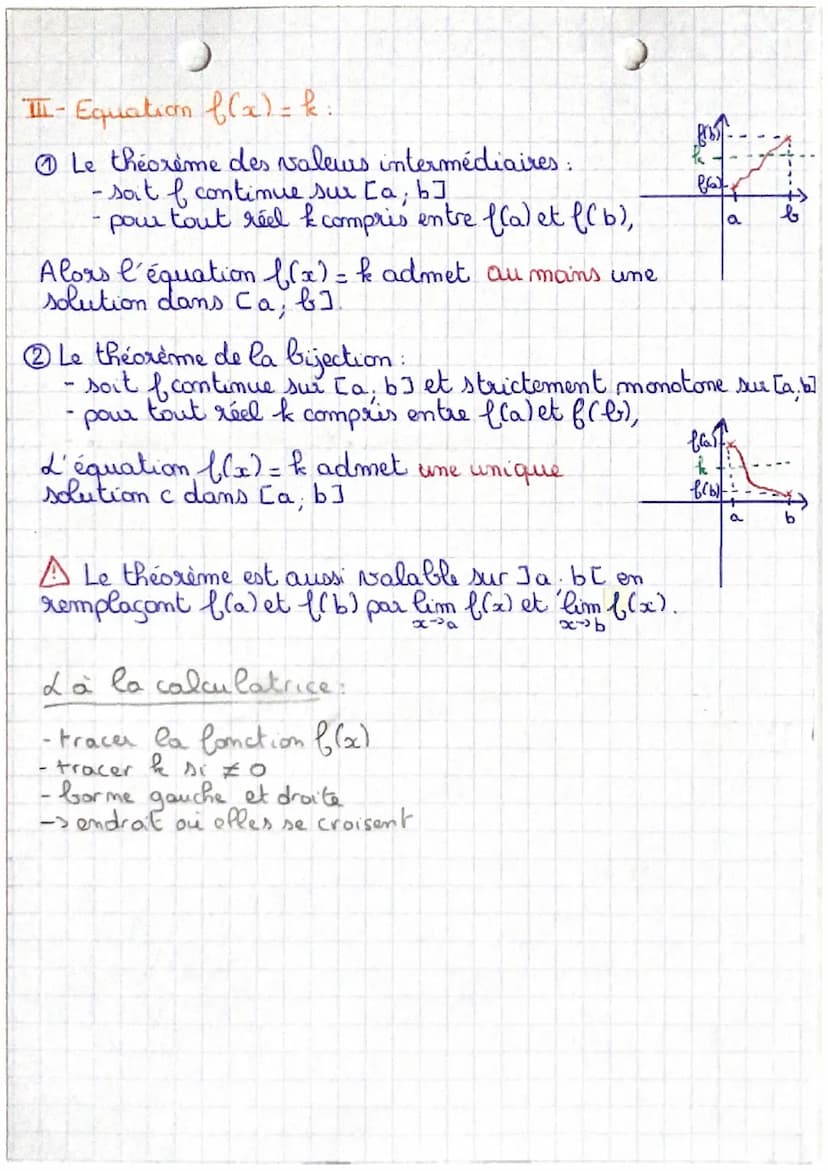 III - Equation f(x) = k :
① Le théorème des valeurs intermédiaires :
- soit f continue sur [a ; b]
- pour tout réel k compris entre f(a) et f(b),
f(b)
k
f(a)
a
b
Alors l'équation f(x) = k admet au moins une
solution dans [a ; b].
② Le théorème de la bijection :
- soit f continue sur [a ; b] et strictement monotone sur [a,b]
- pour tout réel k compris entre f(a) et f(b),
L'équation f(x) = k admet une unique
solution c dans [a ; b]
f(a)
k
f(b)
a
b
⚠ Le théorème est aussi valable sur ]a ; b[ en
remplaçant f(a) et f(b) par lim f(x) et lim f(x).
x→a x→b
à la calculatrice :
- tracer la fonction f(x)
- tracer k si ≠ 0
- borne gauche et droite
-> endroit où elles se croisent